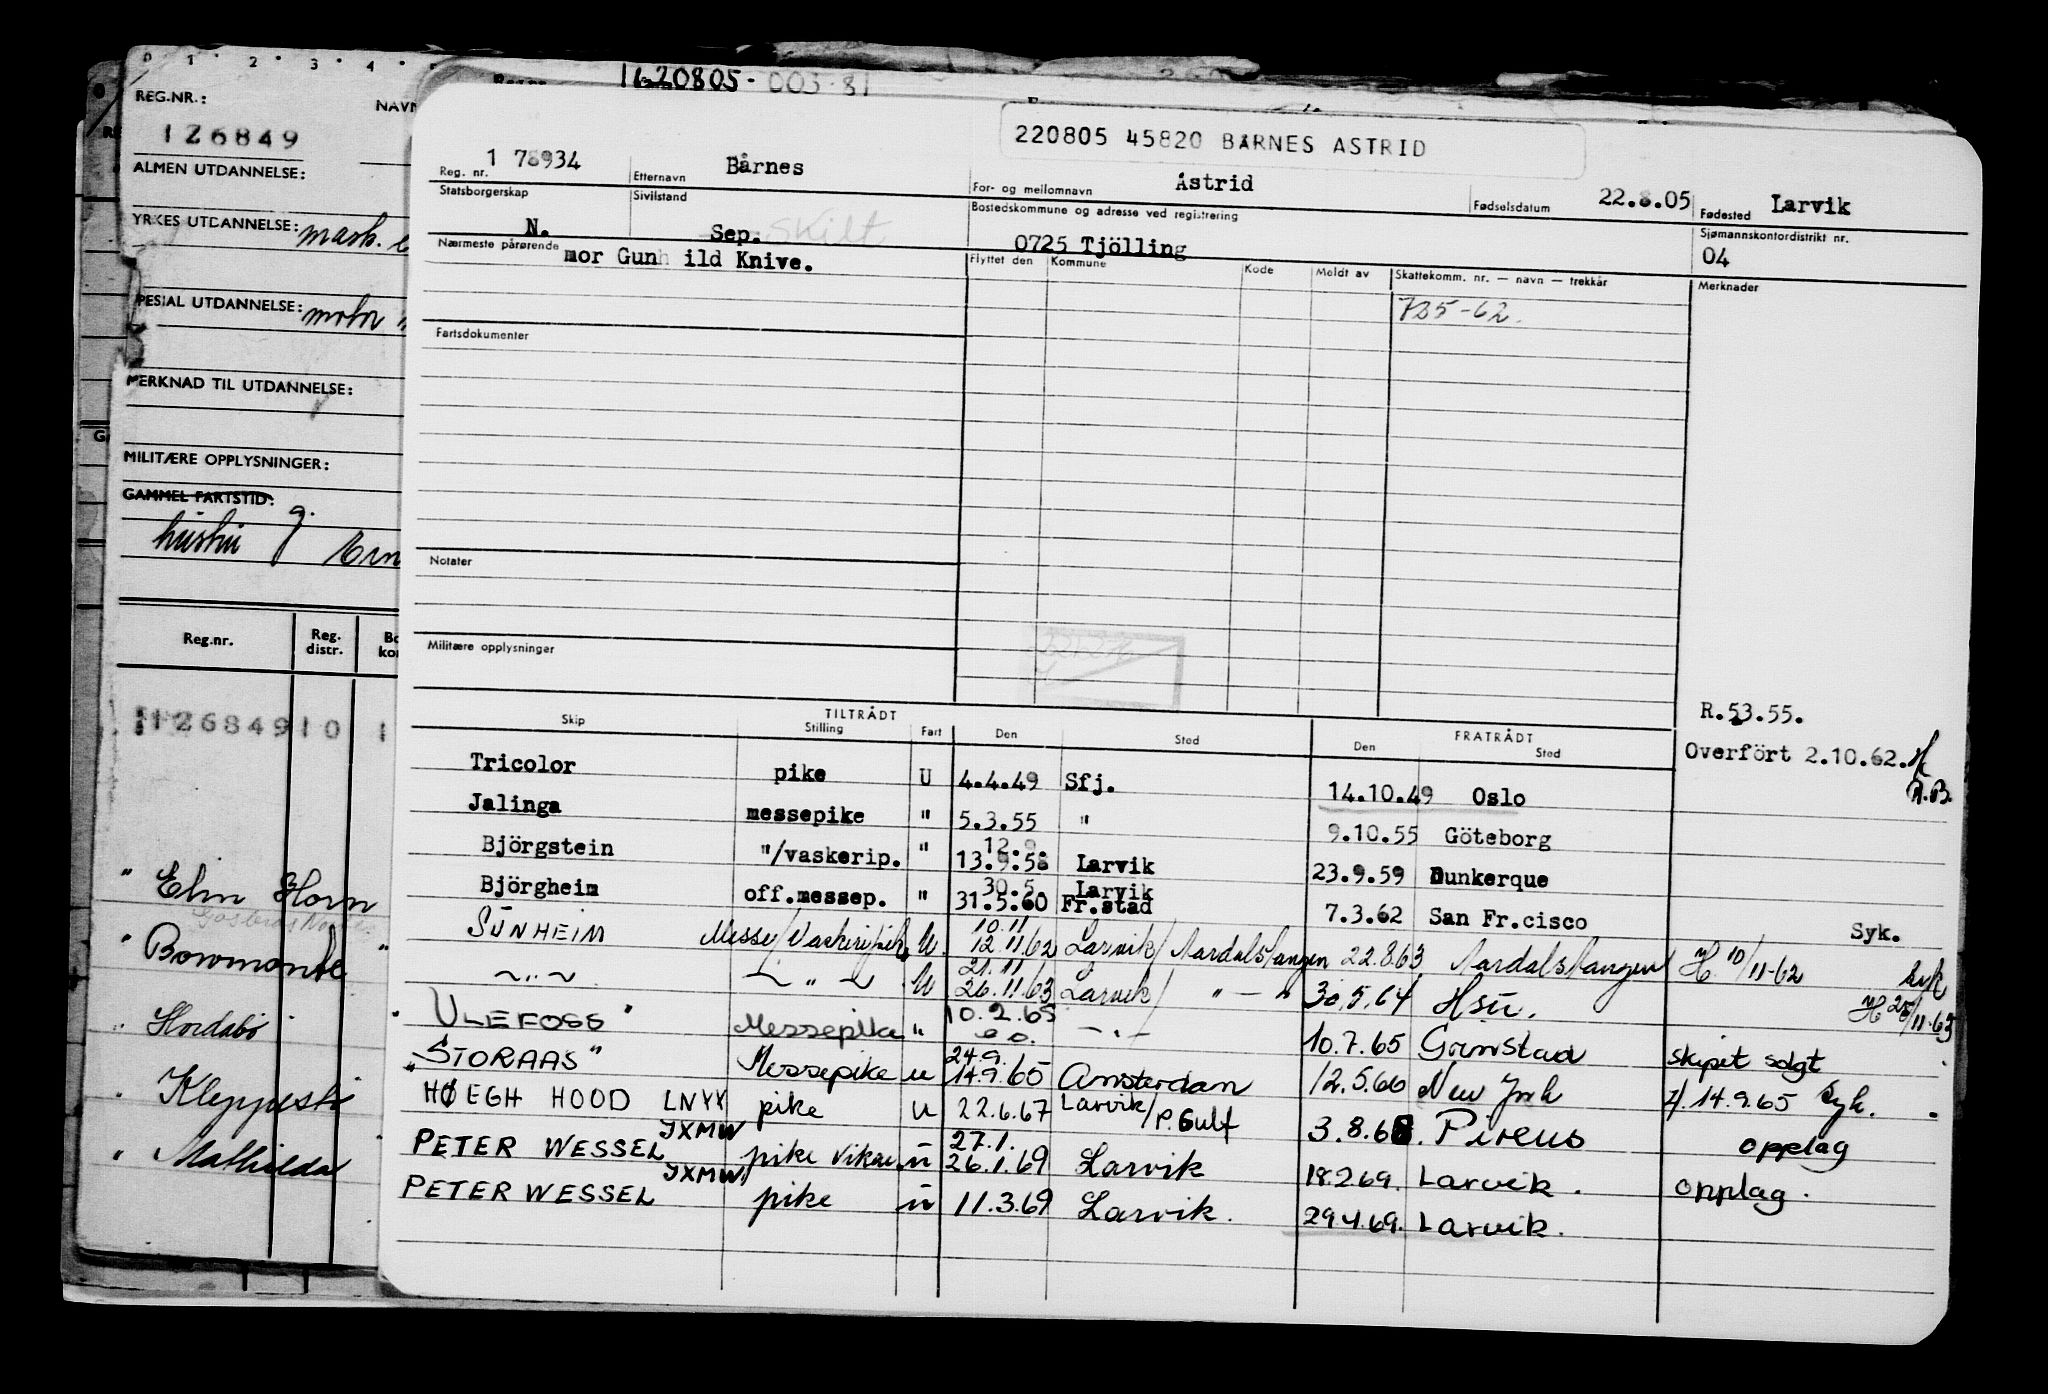 0 1 2 3 4
REG.NR.:
NAVN
126849
ALMEN UTDANNELSE:
YRKES UTDANNELSE: mask.
SPESIAL UTDANNELSE: motor
MERKNAD TIL UTDANNELSE:
MILITÆRE OPPLYSNINGER:
GAMMEL FARTSTID:
Reg.nr. Reg. distr.
126849 10 1
" Elin Horn
" Bowmonte "
" Hordabo
" Kleppesto
" Mathilda
1620805-003-81
220805 45820 BÅRNES ASTRID
Reg. nr. 1 78934 Etternavn Bårnes For- og mellomnavn Åstrid Fødselsdatum 22.8.05 Fødested Larvik
Statsborgerskap N. Sivilstand Sep. skilt Bostedskommune og adresse ved registrering 0725 Tjölling Sjømannskontordistrikt nr. 04
Nærmeste pårørende mor Gunh ild Knive. Flyttet den Kommune Kode Meldt av Skattekomm. nr. — navn — trekkår Merknader
725-62.
Fartsdokumenter
Notater
Militære opplysninger
R.53.55.
Overfört 2.10.62.
A.B.
TILTRÅDT FRATRÅDT
Skip Stilling Fart Den Sted Den Sted
Tricolor pike U 4.4.49 Sfj. 14.10.49 Oslo
Jalinga messepike " 5.3.55 " 9.10.55 Göteborg
12.9.
Björgstein "/vaskerip. " 13.9.58 Larvik 23.9.59 Dunkerque
30.5. Larvik
Björgheim off.messep. " 31.5.60 Fr.stad 7.3.62 San Fr.cisco Syk.
10.11
SUNHEIM Messe/Vaskeripike U. 12.11.62 Larvik/Aardalstangen 22.8.63 Aardalstangen H 10/11-62 syk
21.11
~"~ ~"~ U 26.11.63 Larvik/ "—" 30.5.64 Hsu. H 26/11-63
10.2.65
" ULEFOSS " Messepike " o.o. —"— 10.7.65 Grimstad skipet solgt
24.9.
" STORAAS " Messepike u 14.9.65 Amsterdam 12.5.66 New York 14.9.65 syk.
HØEGH HOOD LNYX pike u 22.6.67 Larvik/P. Gulf 3.8.68. Pireus opplag
JXMW 27.1.
PETER WESSEL pike vikar u 26.1.69 Larvik 18.2.69. Larvik. opplag.
JXMW
PETER WESSEL pike u 11.3.69 Larvik. 29.4.69. Larvik.